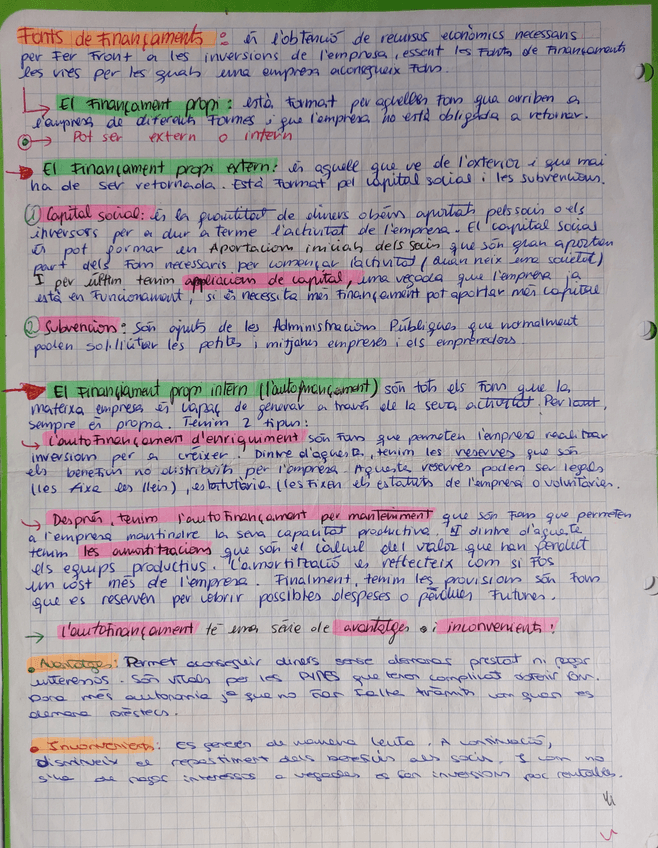 Fonts de Finançaments: és l'obtenció de recursos econòmics necessaris
per fer front a les inversions de l'empresa, essent les Fonts de Finançaments
les vies per les quals una empresa aconsegueix fons.
El Finançament propi: està format per aquelles Fons que arriben a
l'empresa de diferents formes i que l'empresa no està obligada a retornar.
Pot ser extern o intern
El Finançament propi extern: és aquell que ve de l'exterior i que mai
ha de ser retornada. Està format pel capital social i les subvencions.
1 Capital social: és la quantitat de diners o béns aportats pels socis o els
inversors per a dur a terme l'activitat de l'empresa. El capital social
es pot formar en Aportacions inicials dels socis que són gran aporten
part dels Fons necessaris per començar l'activitat (quan neix una societat)
I per últim tenim ampliacions de capital, una vegada que l'empresa ja
està en funcionament, si és necessita més finançament pot aportar més capital
2 Subvencions: Són ajuts de les Administracions Públiques que normalment
poden sol·licitar les petites i mitjanes empreses i els emprenedors.
El Finançiament propi intern (l'autofinançament) són tots els Fons que la
mateixa empresa és capaç de generar a través de la seva activitat. Per tant,
sempre és pròpia. Tenim 2 tipus:
l'autofinançament d'enriquiment són Fons que permeten l'empresa realitzar
inversions per a créixer. Dintre d'aquesta, tenim les reserves que són
els beneficis no distribuïts per l'empresa. Aquesta reserves poden ser legals
(les fixa les lleis), estatutària (les fixen els estatuts de l'empresa o voluntàries.
Després, tenim l'autofinançament per manteniment que són Fons que permeten
a l'empresa mantindre la seva capacitat productiva. I dintre d'aquesta
tenim les amortitzacions que són el càlcul del valor que han perdut
els equips productius. L'amortització es reflecteix com si fos
un cost més de l'empresa. Finalment, tenim les provisions són Fons
que es reserven per cobrir possibles despeses o pèrdues futures.
l'autofinançament té una sèrie de avantatges i inconvenients:
Avantatges: Permet aconseguir diners sense demanar prestat ni pagar
interessos. Són vitals per les PIMES que tenen complicat obtenir
Dona més autonomia ja que no fan falta tràmits com quan es
demana préstecs.
Inconvenients: Es generen de manera lenta. A continuació,
disminueix el repartiment dels beneficis als socis. I com no
s'ha de pagar interessos a vegades es fan inversions poc rentables.